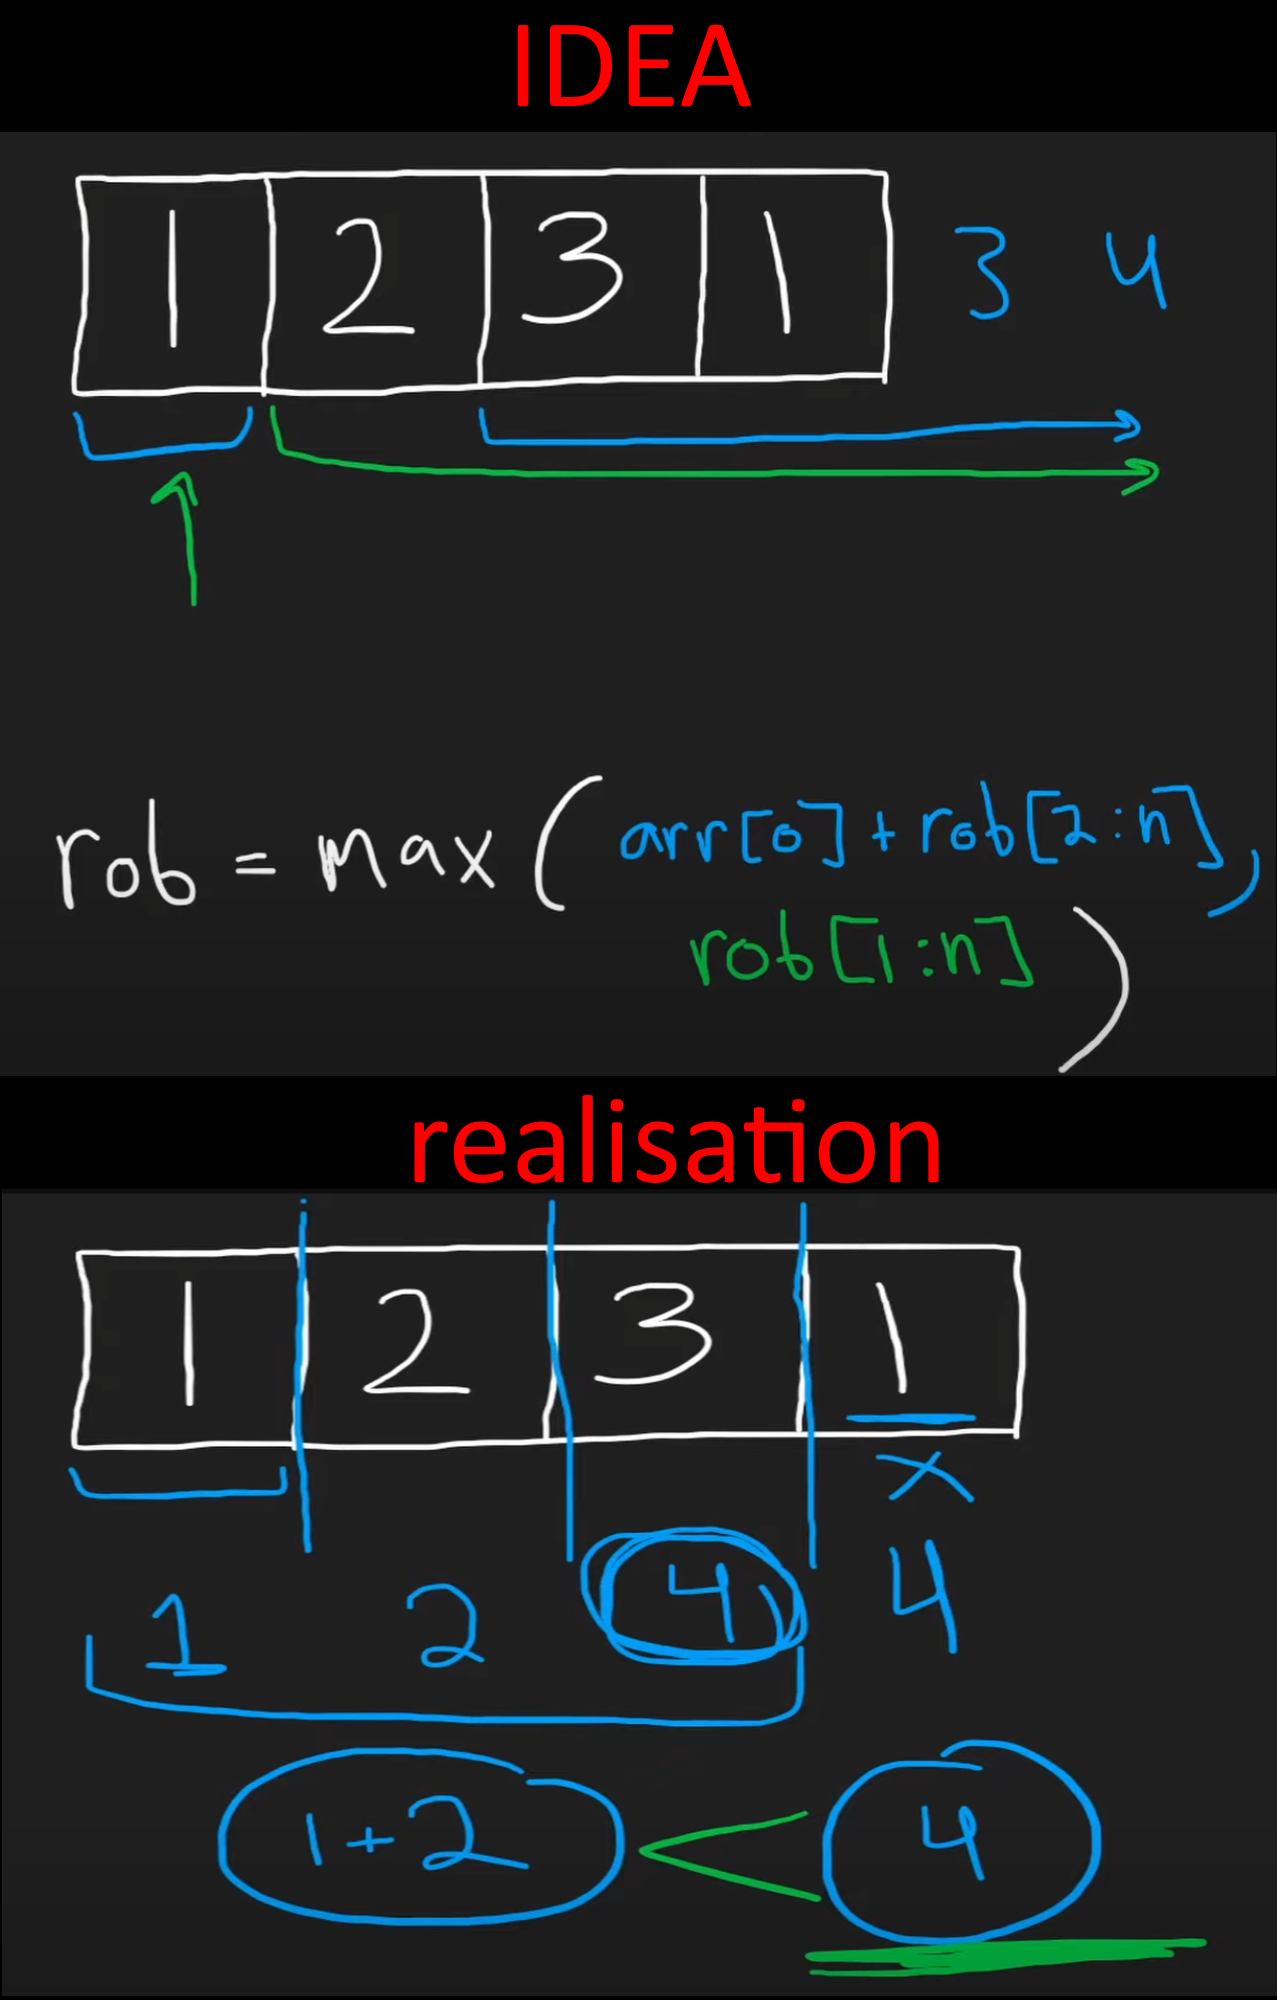 IDEA
1 2 3 1 3 4
rob = max ( arr[0] + rob[2:n],
rob[1:n] )
realisation
1 2 3 1
x
1 2 4 4
1+2 < 4